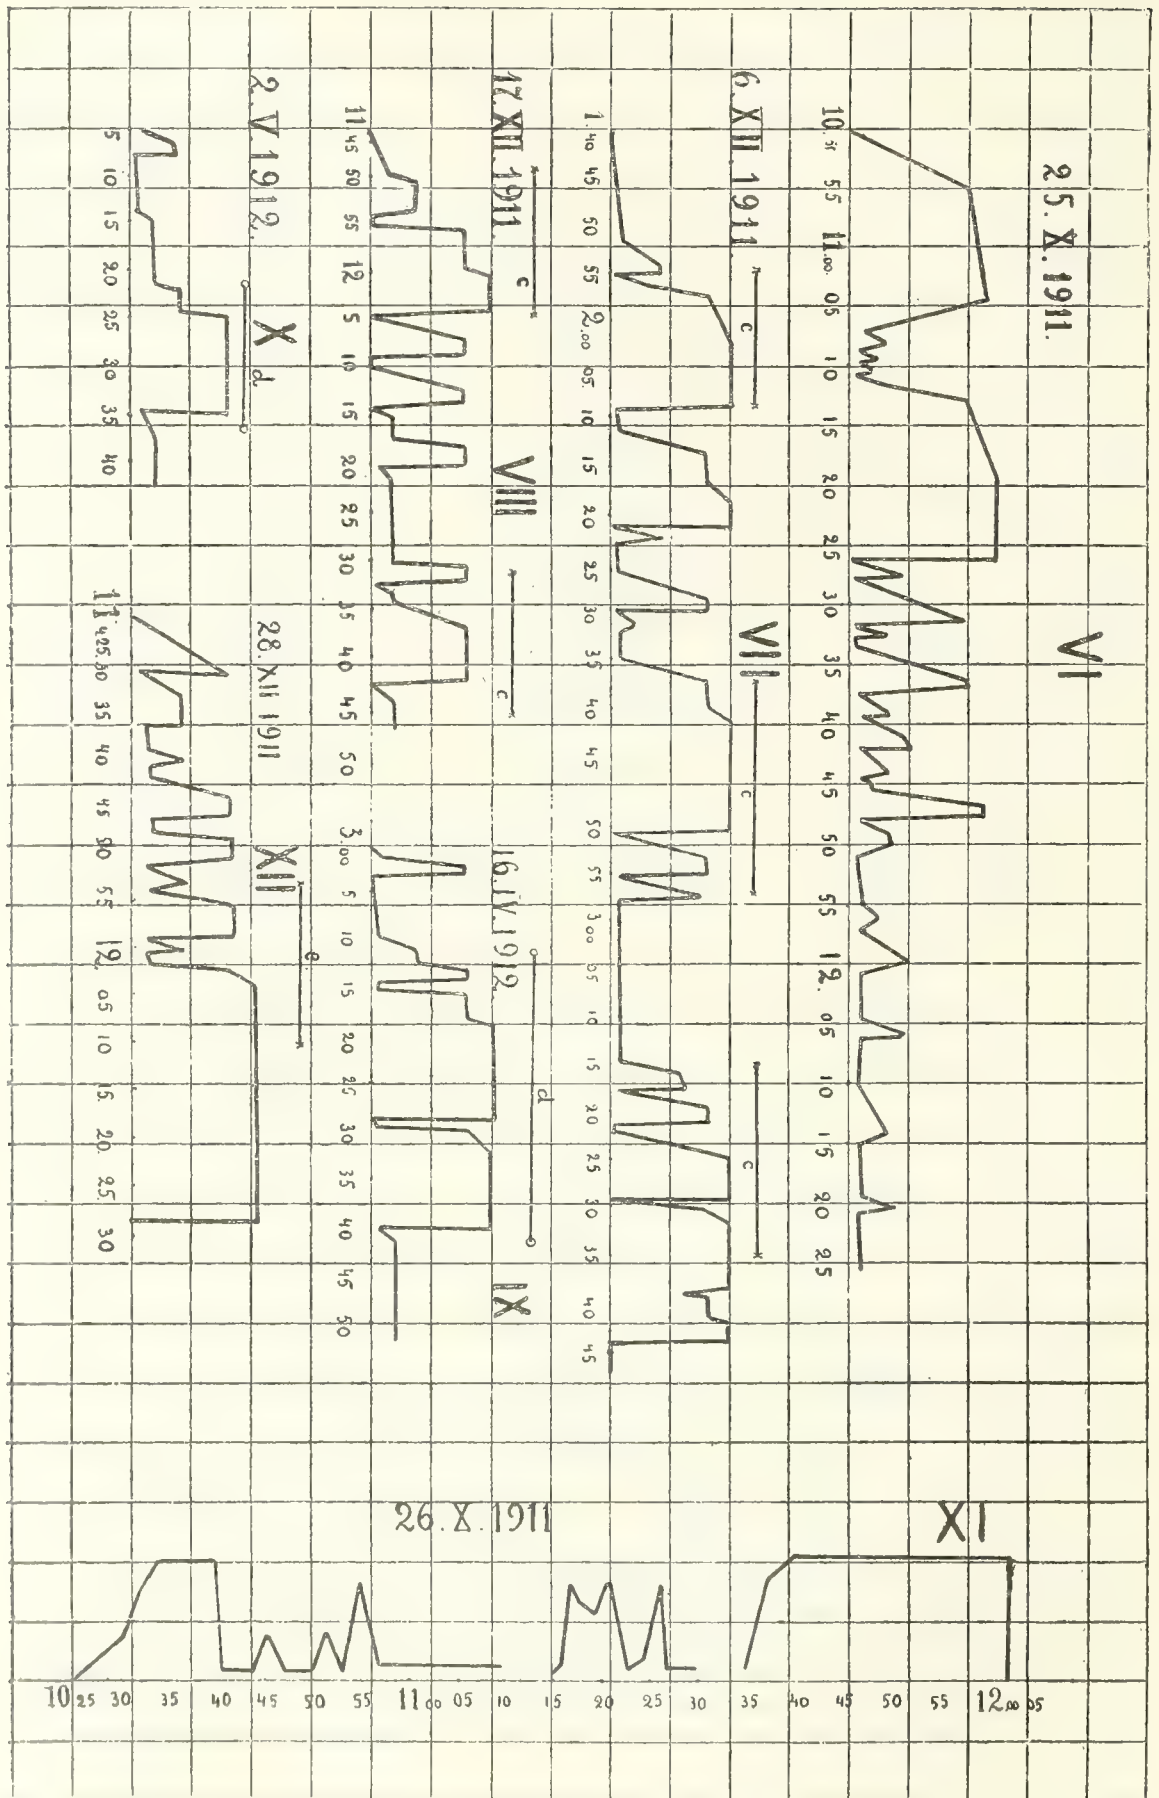 VI
25. X. 1911.
10. 51 55 11.00. 05 10 15 20 25 30 35 40 45 50 55 12. 05 10 15 20 25
6. XII. 1911.
VII
c
c
c
1.40 45 50 55 2.00 05. 10 15 20 25 30 35 40 45 50 55 3.00 05 10 15 20 25 30 35 40 45
17. XII. 1911.
VIII
c
c
11.45 50 55 12 5 10 15 20 25 30 35 40 45 50
16. IV. 1912.
IX
d
3.00 5 10 15 20 25 30 35 40 45 50
2. V. 1912.
X
d
5 10 15 20 25 30 35 40
28. XII 1911
XII
e
11 425.30 35 40 45 50 55 12. 05 10 15 20. 25. 30
XI
26. X. 1911
10 25 30 35 40 45 50 55 11 00 05 10 15 20 25 30 35 40 45 50 55 12.00 05